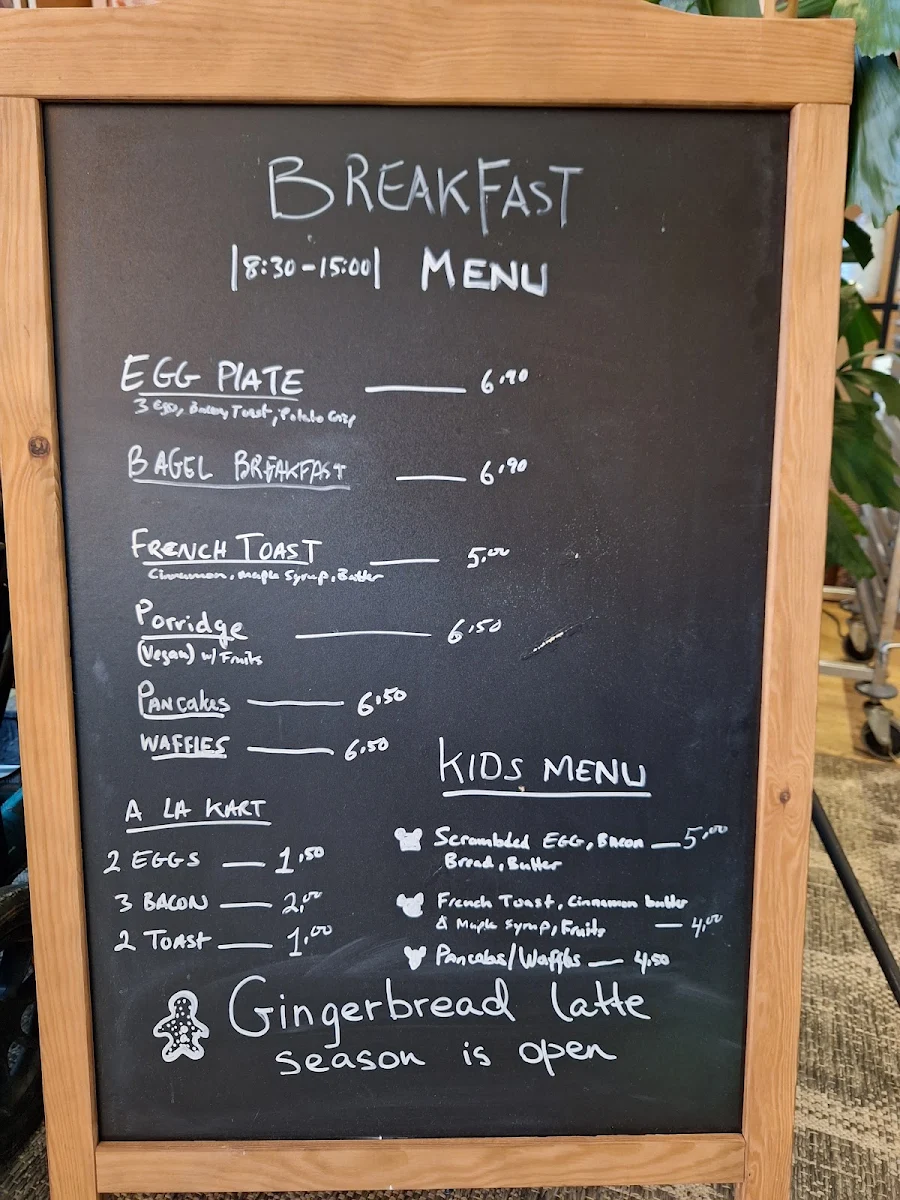 BREAKFAST
|8:30-15:00| MENU
EGG PLATE — 6,90
3 Egg, Bacon, Toast, Potato Crisp
BAGEL BREAKFAST — 6,90
FRENCH TOAST — 5,00
Cinnamon, Maple Syrup, Butter
Porridge — 6,50
(Vegan) w/ Fruits
PANCAKES — 6,50
WAFFLES — 6,50
A LA KART
2 EGGS — 1,50
3 BACON — 2,00
2 TOAST — 1,00
KIDS MENU
Scrambled EGG, Bacon — 5,00
Bread, Butter
French Toast, Cinnamon butter
& Maple Syrup, Fruits — 4,00
Pancakes/Waffles — 4,50
Gingerbread latte
season is open